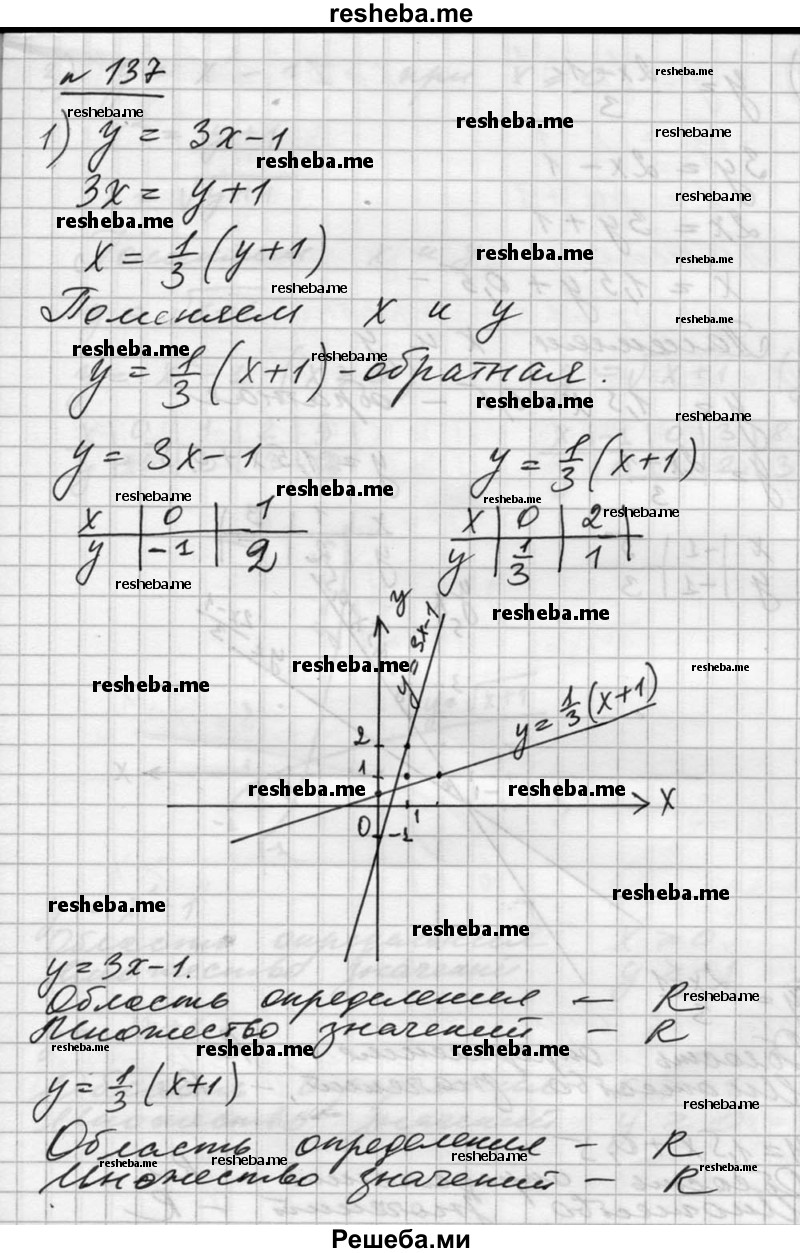 resheba.me
№ 137
resheba.me
resheba.me
1) y = 3x-1
resheba.me
resheba.me
resheba.me
3x = y+1
resheba.me
resheba.me
x = 1/3 (y+1)
resheba.me
resheba.me
resheba.me
Поменяем x и y
resheba.me
resheba.me
resheba.me
y = 1/3 (x+1) - обратная.
resheba.me
resheba.me
y = 3x-1
y = 1/3 (x+1)
resheba.me
resheba.me
resheba.me
resheba.me
x | 0 | 1
y | -1 | 2
x | 0 | 2
y | 1/3 | 1
resheba.me
resheba.me
y
y = 3x-1
resheba.me
resheba.me
resheba.me
y = 1/3 (x+1)
2
1
resheba.me
resheba.me
x
0
-1
1
resheba.me
resheba.me
resheba.me
y = 3x-1.
Область определения - R
resheba.me
Множество значений - R
resheba.me
resheba.me
resheba.me
y = 1/3 (x+1)
resheba.me
Область определения - R
resheba.me
resheba.me
resheba.me
resheba.me
Множество значений - R
Решеба.ми